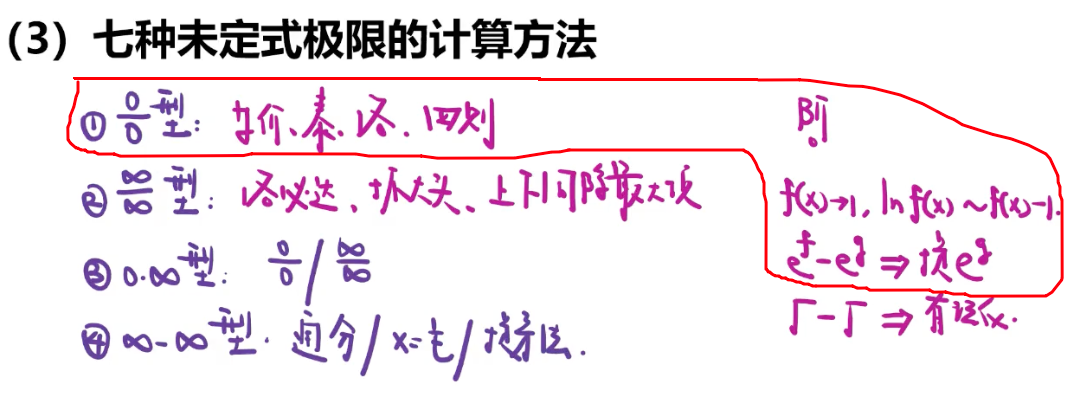 （3）七种未定式极限的计算方法
① 0/0 型: 等价、泰、洛、四则
② ∞/∞ 型: 洛必达、抓大头、上下同除最大项
③ 0·∞ 型: 0/0 / ∞/∞
④ ∞-∞ 型. 通分 / x=1/t / 提劳法.
阶
f(x)→1, ln f(x) ~ f(x)-1.
e^f - e^g ⇒ 提 e^g
√ - √ ⇒ 有理化.